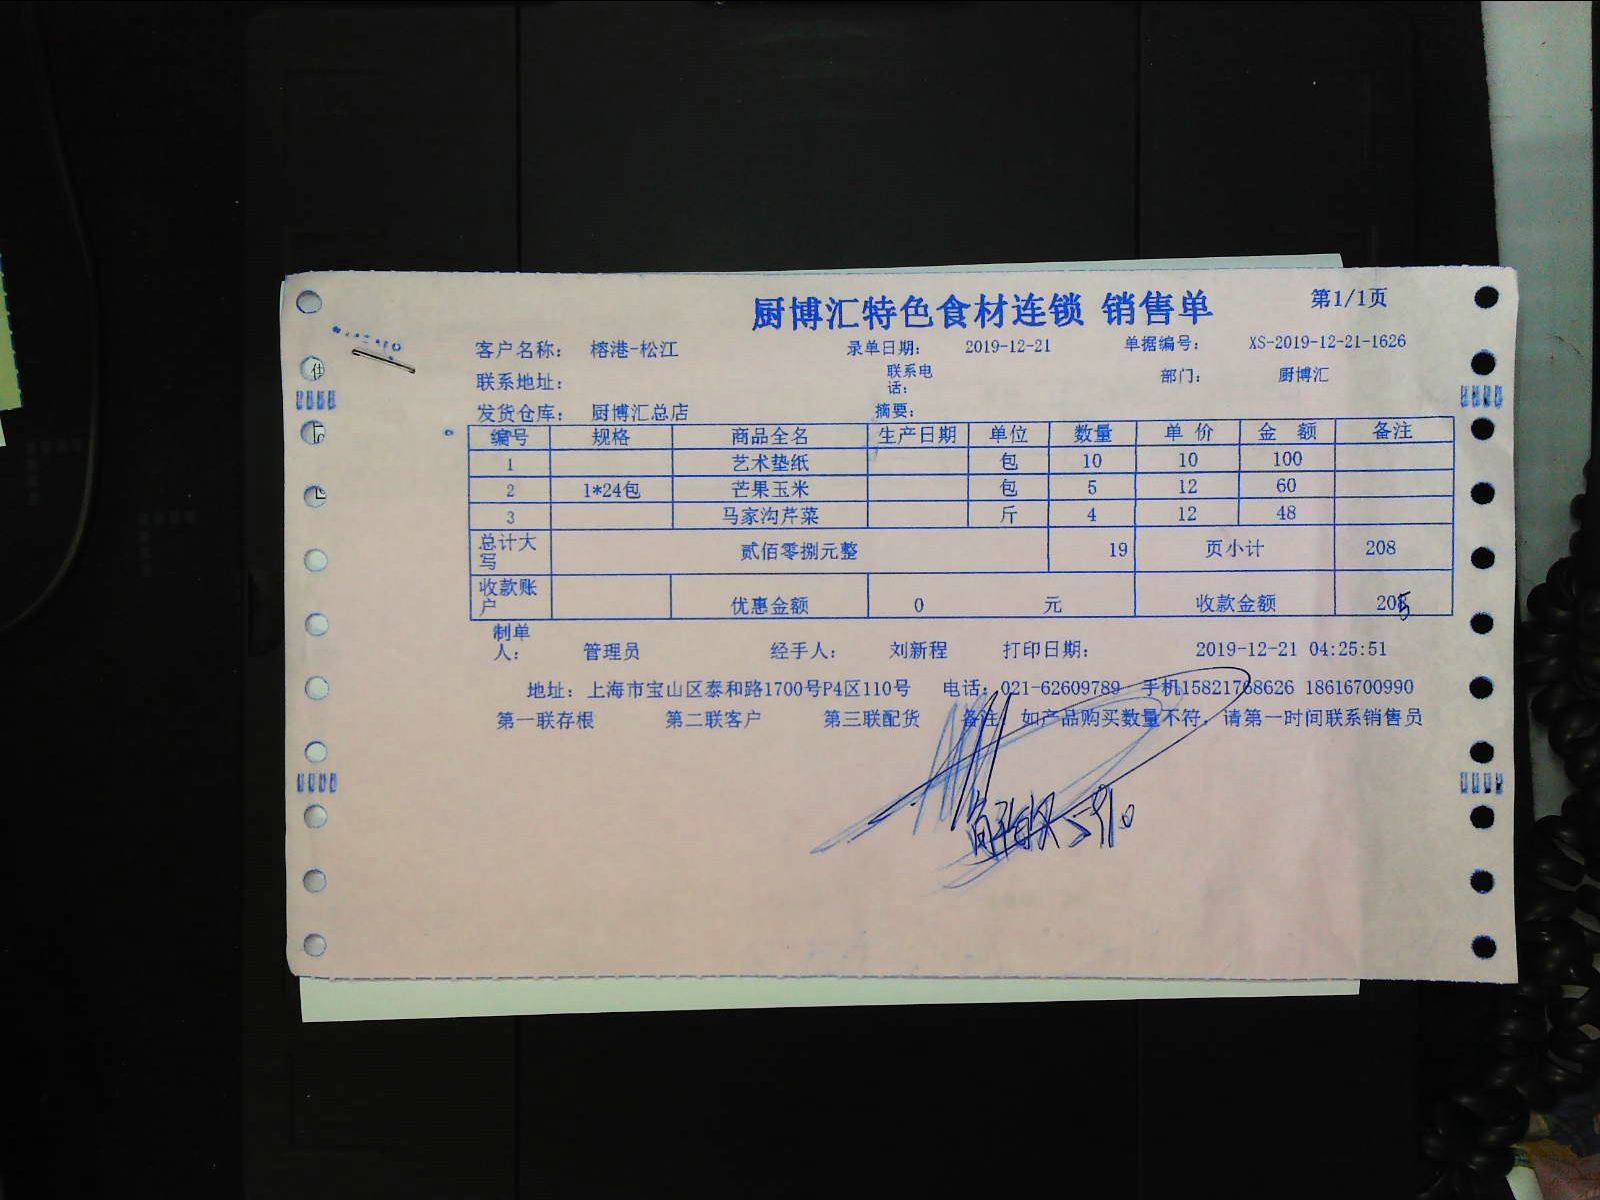 厨博汇特色食材连锁 销售单 第1/1页
客户名称： 榕港-松江 录单日期： 2019-12-21 单据编号： XS-2019-12-21-1626
联系地址： 联系电话： 部门： 厨博汇
发货仓库： 厨博汇总店 摘要：
编号 规格 商品全名 生产日期 单位 数量 单 价 金 额 备注
1 艺术垫纸 包 10 10 100
2 1*24包 芒果玉米 包 5 12 60
3 马家沟芹菜 斤 4 12 48
总计大写 贰佰零捌元整 19 页小计 208
收款账户 优惠金额 0 元 收款金额 205
制单人： 管理员 经手人： 刘新程 打印日期： 2019-12-21 04:25:51
地址：上海市宝山区泰和路1700号P4区110号 电话：021-62609789 手机15821768626 18616700990
第一联存根 第二联客户 第三联配货 备注：如产品购买数量不符，请第一时间联系销售员